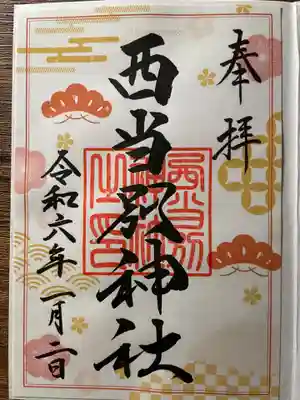 奉拝
西当別神社
令和六年一月二日